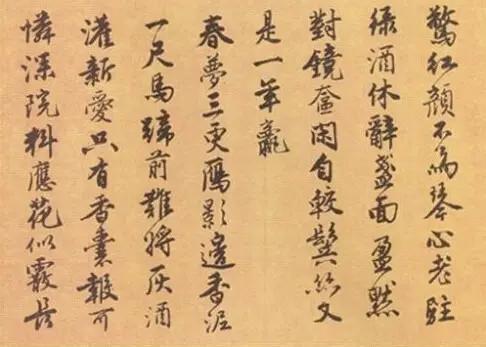 驚紅顏不爲琴心老駐
綠酒休辭盞面盈默
對鏡奩閑自較鬢絲又
是一年贏
春夢三更鴈影邊香泥
一尺馬蹄前難將灰酒
灌新愛只有香囊報可
憐深院料應花似霰長